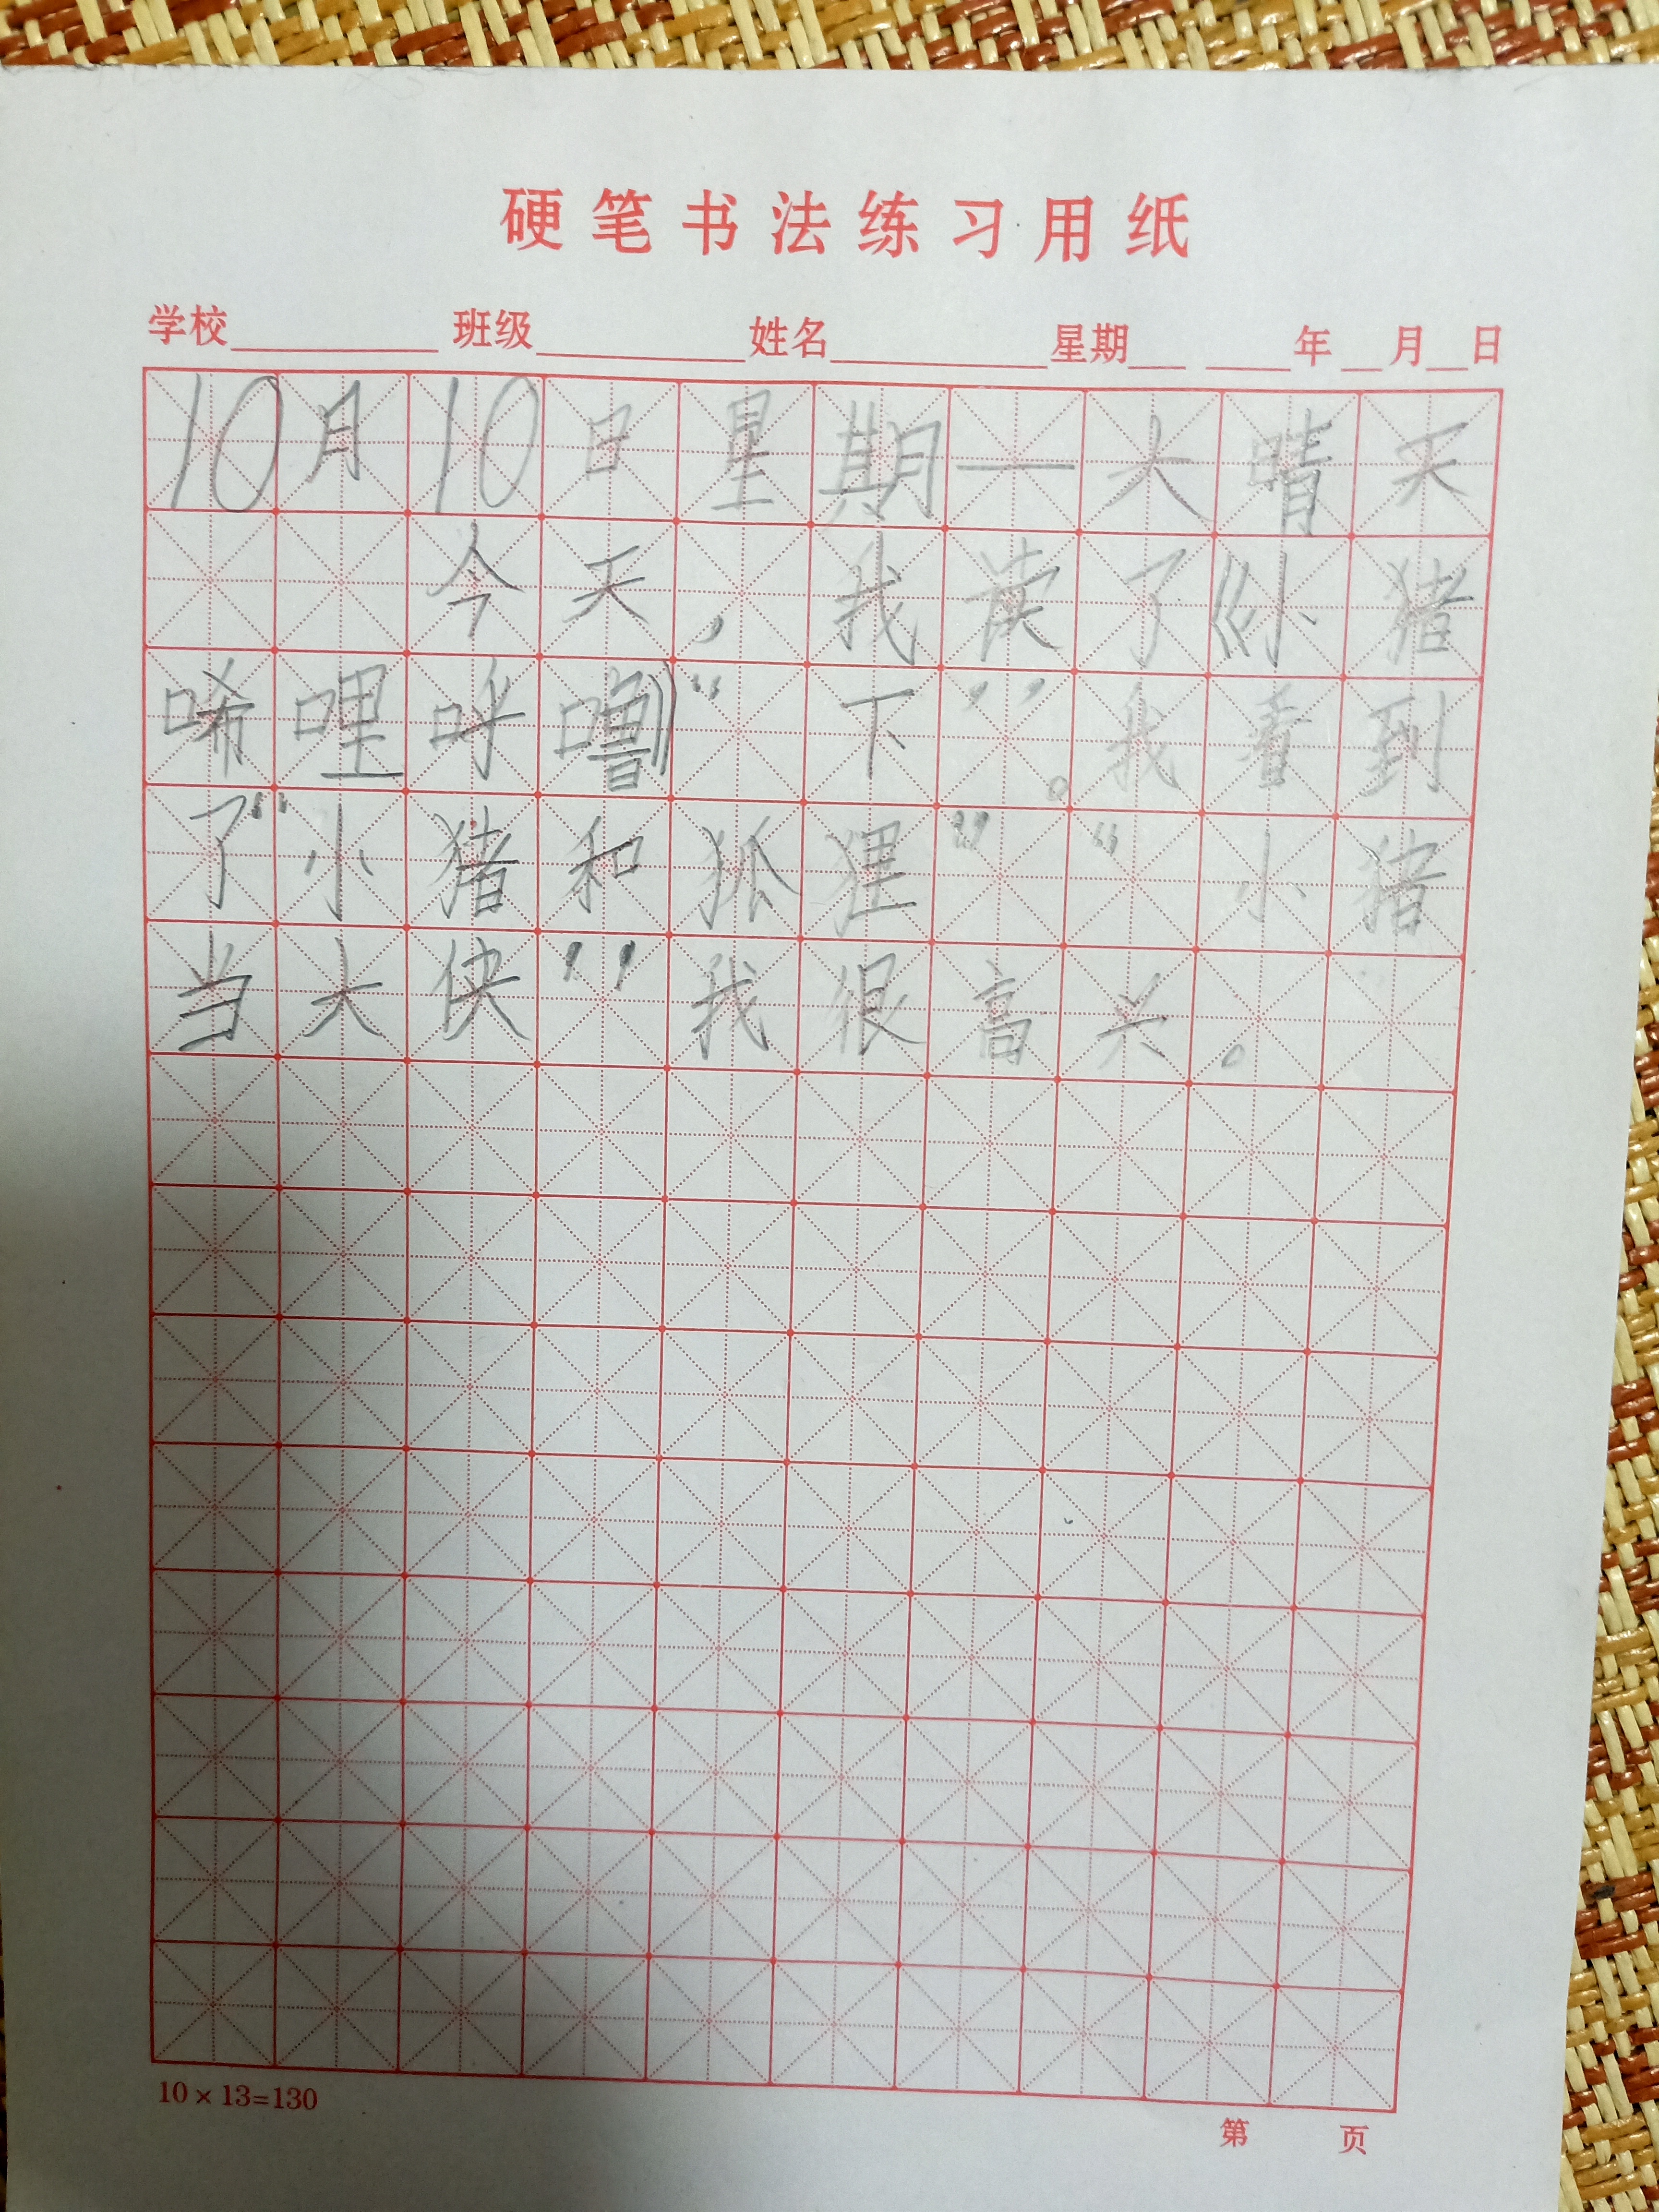 硬笔书法练习用纸
学校 班级 姓名 星期 年 月 日
10月10日星期一大晴天
今天,我读了《小猪
唏哩呼噜》“下”。我看到
了“小猪和狐狸”“小猪
当大侠”我很高兴。
10×13=130
第 页